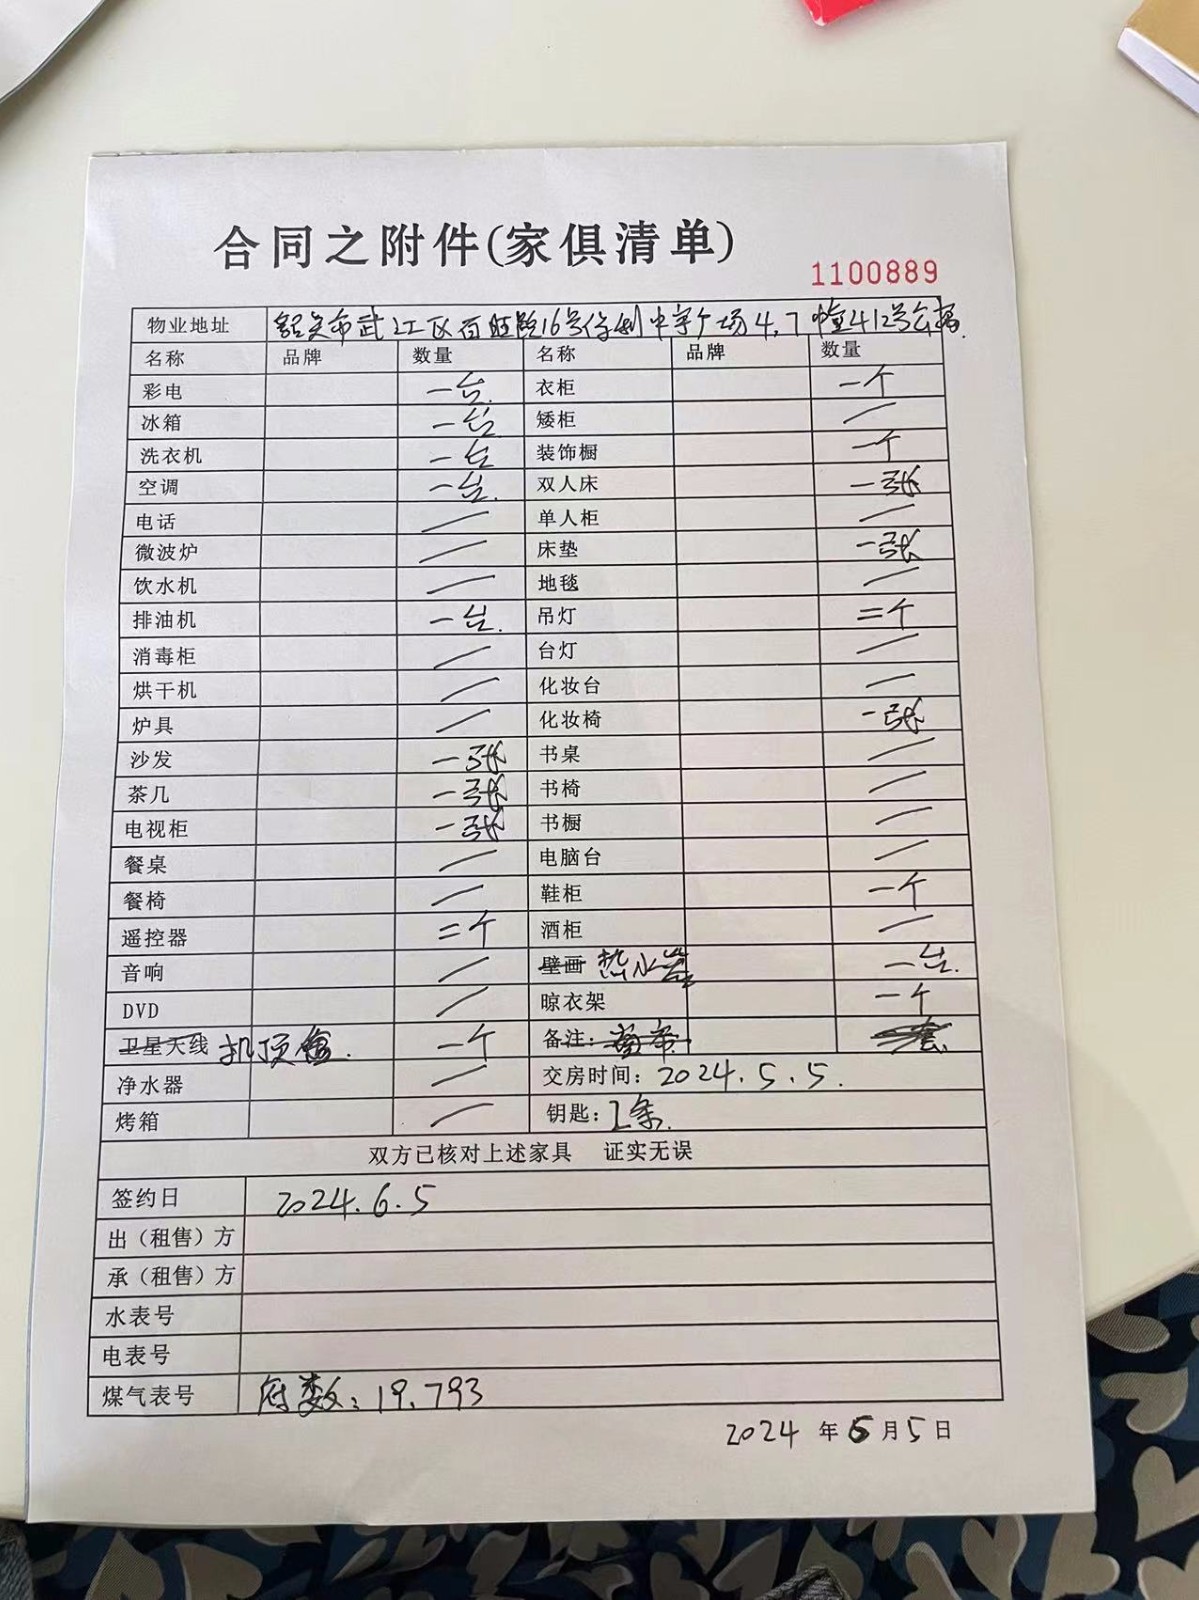 合同之附件(家俱清单)
1100889
物业地址 韶关市武江区百旺路16号 广场4.7幢412号公寓
名称 品牌 数量 名称 品牌 数量
彩电 一台. 衣柜 一个
冰箱 一台 矮柜 /
洗衣机 一台 装饰橱 一个
空调 一台. 双人床 一张
电话 / 单人柜 /
微波炉 / 床垫 一张
饮水机 / 地毯 /
排油机 一台. 吊灯 二个
消毒柜 / 台灯 /
烘干机 / 化妆台 /
炉具 / 化妆椅 一张
沙发 一张 书桌 /
茶几 一张 书椅 /
电视柜 一张 书橱 /
餐桌 / 电脑台 /
餐椅 / 鞋柜 一个
遥控器 二个 酒柜 /
音响 / 壁画 热水器 一台.
DVD / 晾衣架 一个
卫星天线 机顶盒. 一个 备注: 窗帘 一套
净水器 / 交房时间: 2024.5.5.
烤箱 / 钥匙: 2条.
双方已核对上述家具 证实无误
签约日 2024.6.5
出（租售）方
承（租售）方
水表号
电表号
煤气表号 府数: 19.793
2024 年 6 月 5 日